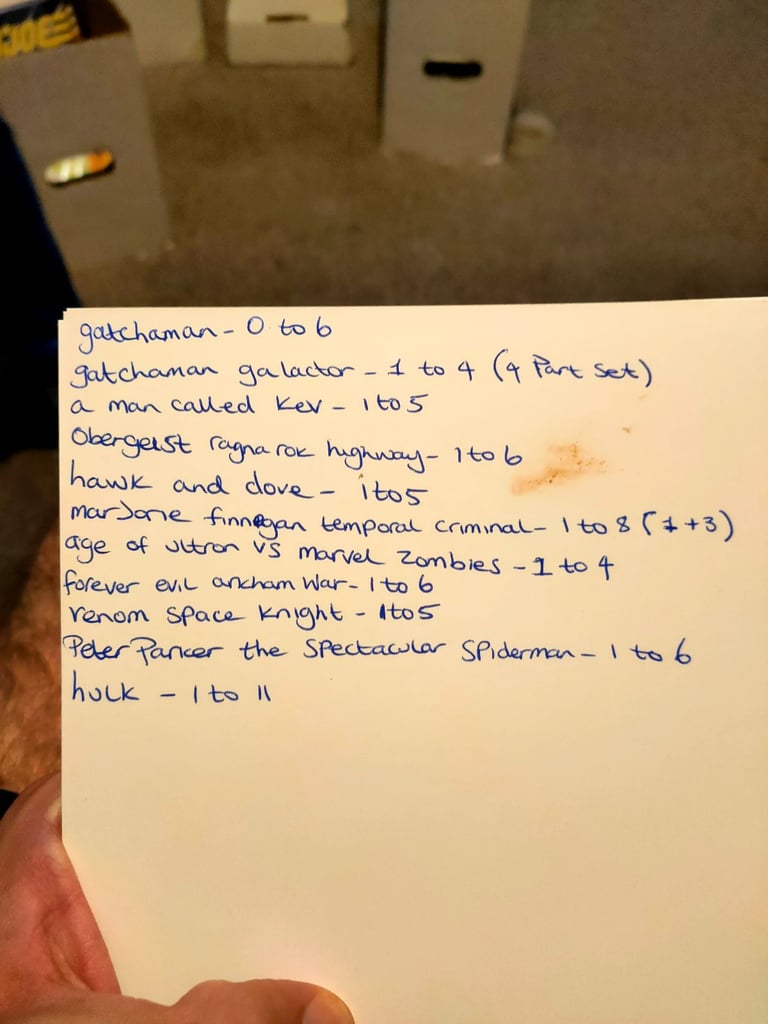 GIJOE
gatchaman - 0 to 6
gatchaman galactor - 1 to 4 (4 Part Set)
a man called Kev - 1 to 5
Obergeist ragnarok highway - 1 to 6
hawk and dove - 1 to 5
marJorie finnegan temporal criminal - 1 to 8 (1 + 3)
age of ultron VS marvel Zombies - 1 to 4
forever evil arkham War - 1 to 6
venom Space Knight - 1 to 5
Peter Parker the Spectacular Spiderman - 1 to 6
hulk - 1 to 11